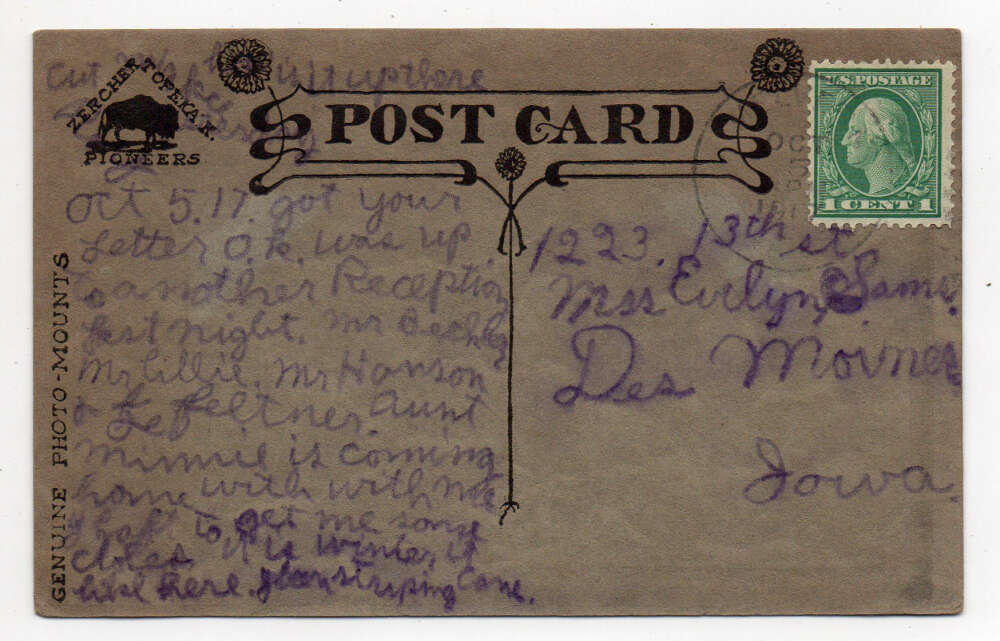 ZERCHER TOPEKA K.
PIONEERS
GENUINE PHOTO-MOUNTS
POST CARD
U.S. POSTAGE
1 CENT 1
OCT
Cut up there
Oct 5.17. got your
Letter O.k. was up
To another Reception
Last Night. Mr
Mr Lillie. Mr Hanson
Feltner. Aunt
Minnie is coming
home with with me
to get me some
Cloles it is winter
like here. stripping Cane.
1223. 13th st.
Mss Evelyn Sams.
Des Moines
Iowa.